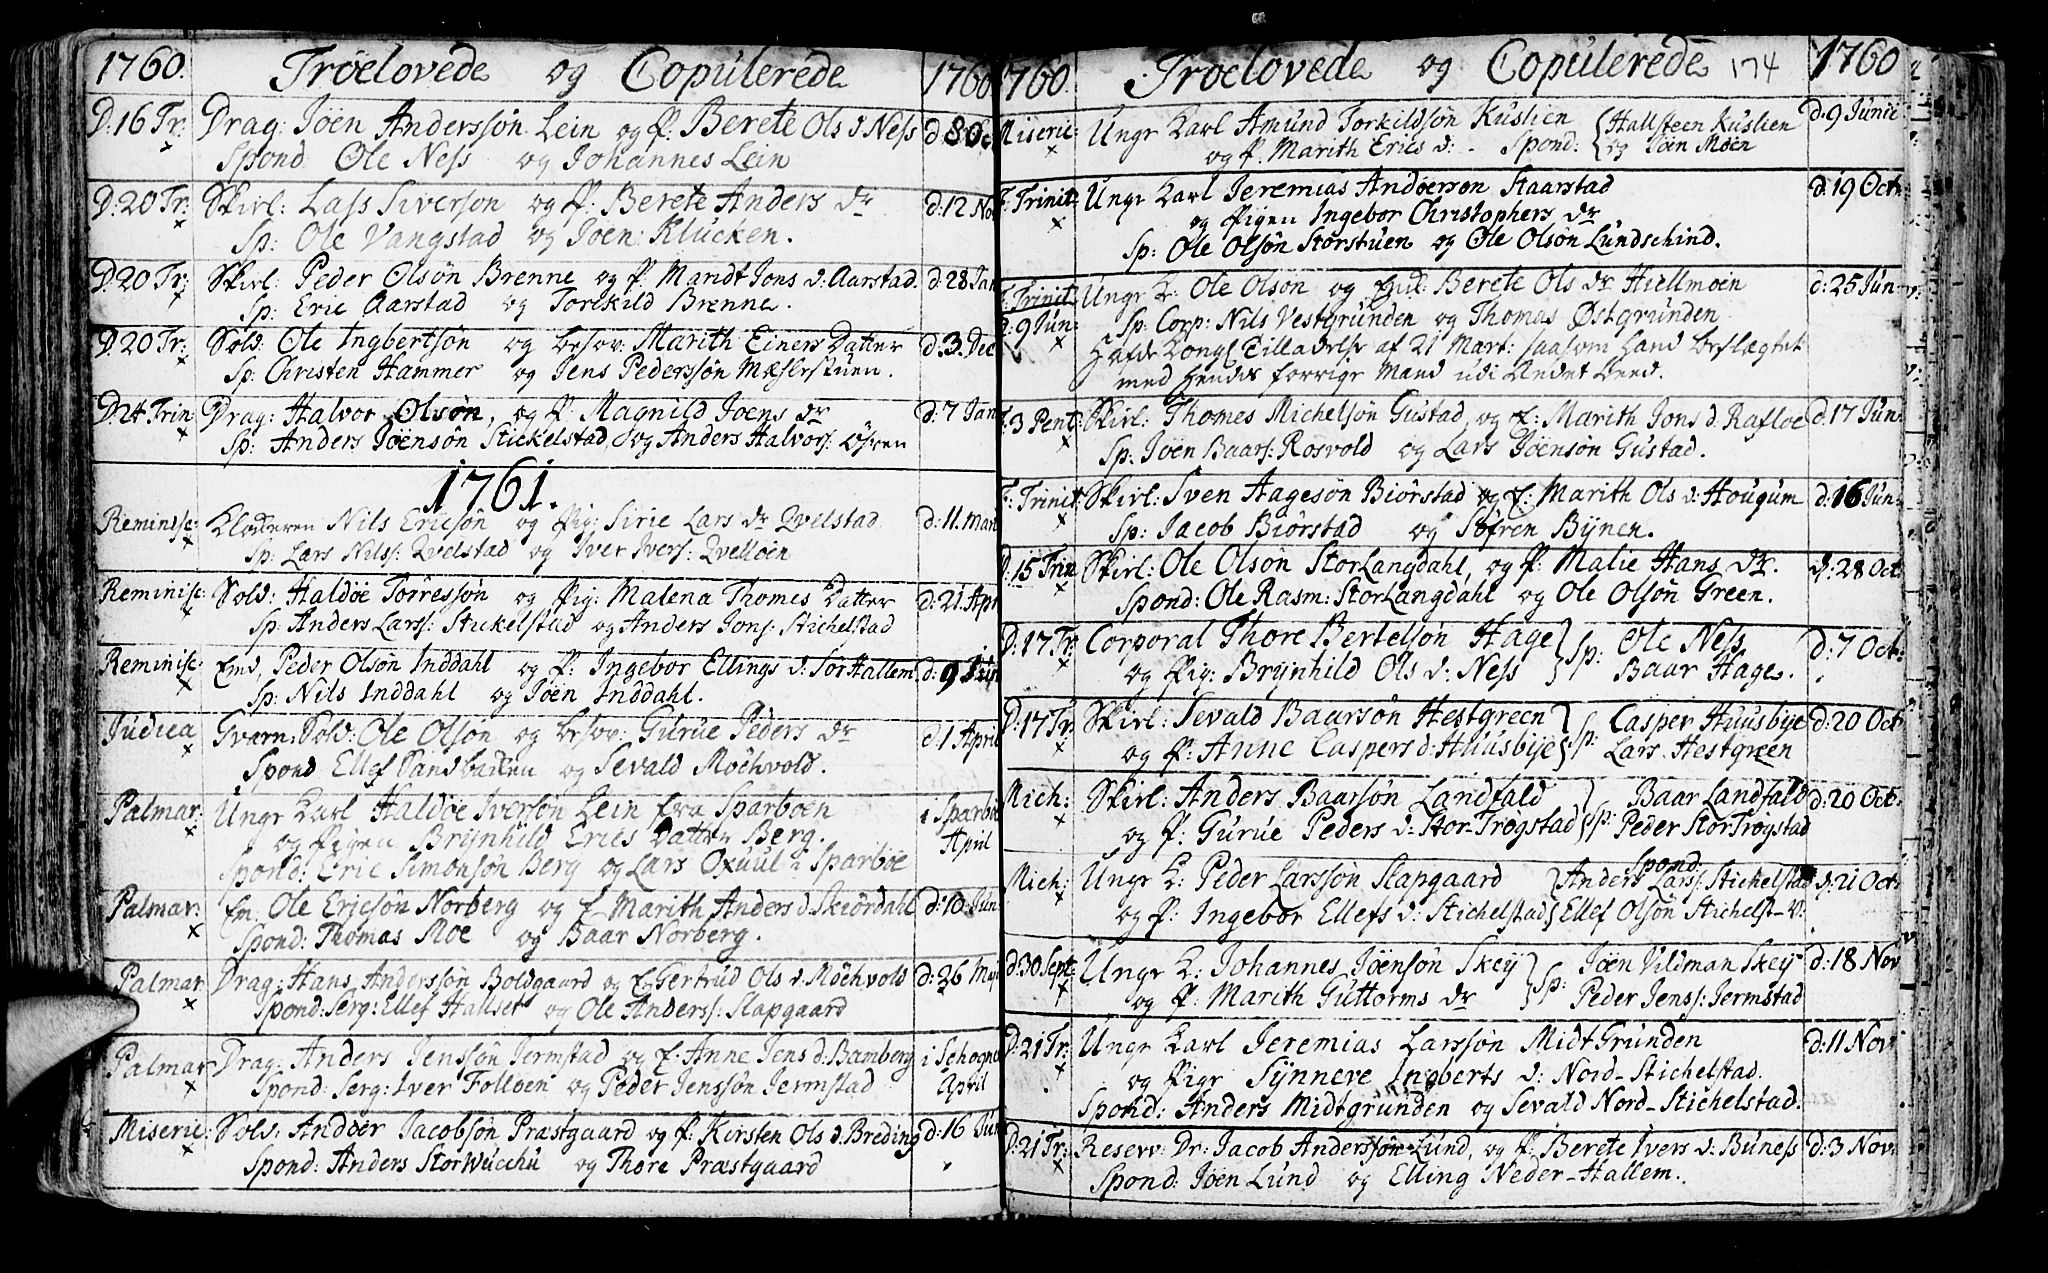 1760. Tröelovede og Copulerede 1760
D: 16 Tr. Drag: Jöen Anderssön Lein og P. Berete Ols d Ness d. 8 Oc
Spond Ole Ness og Johannes Lein
D: 20 Tr: Skirl: Lass Siverson og P. Berete Anders dr d: 12 No
Sp: Ole Vangstad og Jöen Klucken.
D: 20 Tr: Skirl: Peder Olsön Brenne og P. Maridt Jons d: Aarstad. d: 28 Jan
Sp: Eric Aarstad og Torekild Brenne.
D: 20 Tr: Sold: Ole Ingbertsön og besov: Marith Einers Datter d: 3. Dec
Sp: Christen Hammer og Jens Pederssön
D. 24 Trin Drag: Halvor Olsön, og P. Magnild Joens dr d: 7 Jan
Sp: Anders Jöensön Stickelstad, og Anders Halvors: Öfren
1761.
Reminisc: Nils Ericsön og Pig: Sirie Lars dr Qvelstad d: 11. Mart
Sp: Lars Nilss: Qvelstad og Iver Ivers: Qvellöin
Reminisc: Sold: Haldöe Törressön og Pig: Malena Thomes Datter d: 21. Apr
Sp: Anders Larss: Stickelstad og Anders Jons: Stichelstad
Reminisc: Peder Olsön Inddahl og P. Ingebor Ellings d: SörHallem d: 9
Sp: Nils Inddahl og Jöen Inddahl.
Judica Gvarn: Sold: Ole Olsön og besov: Gurue Peders dr d: 1 April
Spond Ellef Sandbacken og Sevald Möchvold.
Palmar: Ungr Karl Haldöe Iversön Lein fra Sparboen i Sparbo
og Pigen Brynhild Erics Datter Berg. April
Spond: Eric Simonsön Berg og Lars Oxuul Sparböe
Palmar: Em: Ole Ericsön Norberg og E. Marith Anders d. Skiördahl d: 10. Jun
Spond: Thomas Moe og Baar Norberg.
Palmar Drag: Hans Anderssön Boldgaard og E. Gertrud Ols d. Möchvold d: 26 Maji
Spond: Serg: Ellef Hallset og Ole Anderss: Slapgaard
Palmar Drag: Anders Jenssön Jermstad og E. Anne Jens d: Bamberg i Schogne
Spond: Serg: Iver Folloen og Peder Jenssön Jermstad April
Miseric: Sold: Andöer Jacobsön Præstgaard og P. Kirsten Ols d. Breding d: 16 Jun
Spond: Anders StorWucchu og Thore Præstgaard
1760. Troelovede og Copulerede 174 1760
Miseric Ungr Karl Amund Torkildsön Kuslien Hallsteen Kuslien d: 9 Junii
og P. Marith Erics d: Spond: og Jöen Moen
F. Trinit: Ungr Karl Jeremias Andöerson Staarstad d: 19 Octr:
og Pigen Ingebor Christophers dr
Sp: Ole Olsön Storstuen og Ole Olsön Lundschind.
F. Trinit: Ungr K: Ole Olson og Enk: Berete Ols dr Hiellmoen d: 25 Jun
d: 9 Jun: Sp: Corp: Nils Vestgrunden og Thomas Östgrunden
Hafde Kongl Tilladelse af 21 Mart: saasom hand beslægtet
med hendes forrige Mand udi andet Leed.
F. 3 Pent: Skirl: Thomes Michelsön Gustad og E: Marith Jons d. Rafloe d: 17 Jun:
Sp: Jöen Baars: Rosvold og Lars Jöensön Gustad.
F: Trinit: Skirl: Sven Hagesön Biörstad og E: Marith Ols d: Hougum d: 16 Jun:
Sp: Jacob Biörstad og Söfren Bÿnen.
D: 15 Trin Skirl: Ole Olsön StorLangdahl, og P. Malie Hans dr. d: 28 Oct:
Spond: Ole Rasm: StorLangdahl og Ole Olsön Green.
D: 17 Tr: Corporal Thore Bertelsön Hage Sp: Ole Ness d: 7 Oct:
og Pig: Brynhild Ols d: Ness Baar Hage.
D: 17 Tr: Skirl: Sevald Baarsön Hestgreen Sp: Casper Huusbye d: 20 Oct
og P. Anne Caspers d: Huusbye Lars Hestgreen
Mich: Skirl: Anders Baarsön Landfald Sp: Baar Landfald d: 20 Oct:
og P. Gurue Peders d: Stor-Trögstad Peder StorTrögstad
Mich: Ungr K: Peder Larssön Slapgaard Spond: Anders Larss: Stichelstad d: 21 Oct:
og P: Ingebor Ellefs d: Stichelstad Ellef Olsön Stichelst-V:
d: 30 Sept: Ungr K: Johannes Jöensön Skeÿ Sp: Jöen Vildman Skeÿ d: 18 Nov
og P. Marith Guttorms dr Peder Jenss: Jermstad
D: 21 Tr: Ungr Karl Jeremias Larssön MidtGrunden d: 11 Nov
og Pigr Synneve Ingberts d: Nord-Stichelstad.
Spond: Anders Midtgrunden og Sevald Nord-Stichelstad.
D: 21 Tr: Reserv: Dr: Jacob Anderssön Lund, og P. Berete Ivers d: Buness d: 3 Nov
Spond: Jöen Lund og Elling Neder-Hallem.